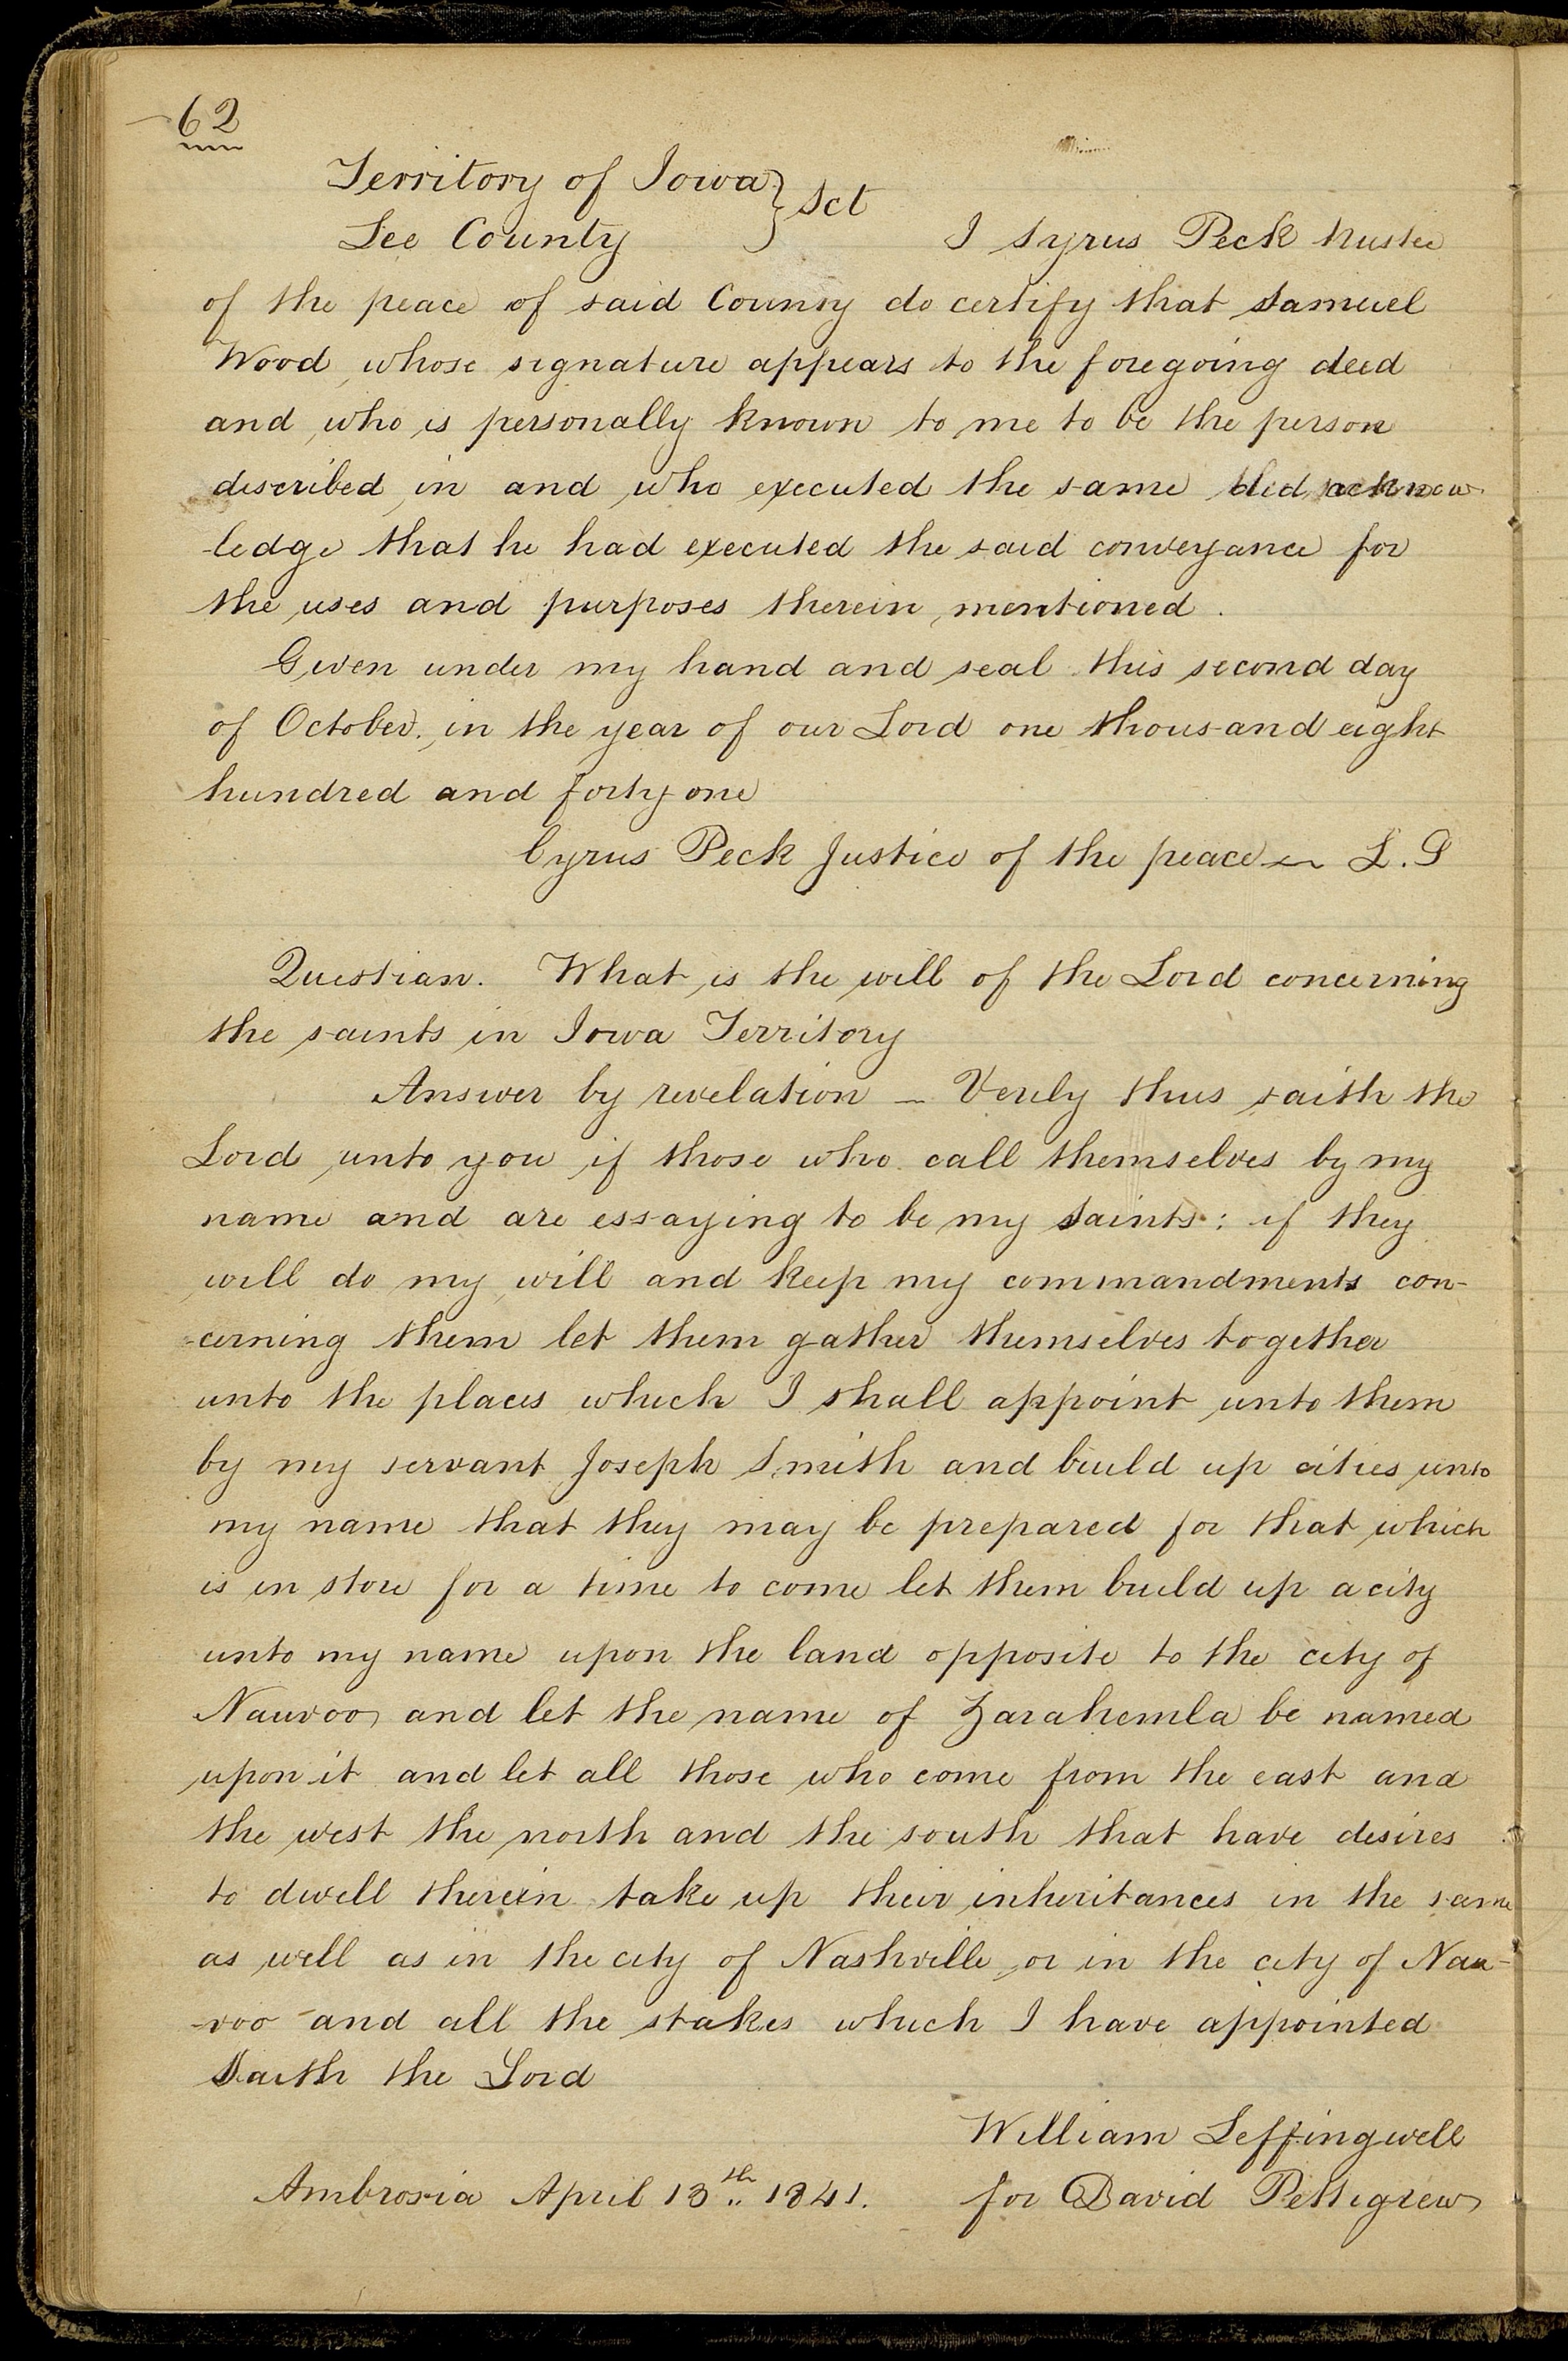 62
Territory of Iowa } Sct
Lee County
I Syrus Peck
of the peace of said County do certify that Samuel
Wood whose signature appears to the foregoing deed
and who is personally known to me to be the person
described in and who executed the same did acknow
-ledge that he had executed the said conveyance for
the uses and purposes therein mentioned.
Given under my hand and seal this second day
of October, in the year of our Lord one thousand eight
hundred and forty one
Cyrus Peck Justice of the peace — L.S
Question. What is the will of the Lord concerning
the saints in Iowa Territory
Answer by revelation — Verily thus saith the
Lord unto you if those who call themselves by my
name and are essaying to be my Saints: if they
will do my will and keep my commandments con-
-cerning them let them gather themselves together
unto the places which I shall appoint unto them
by my servant Joseph Smith and build up cities unto
my name that they may be prepared for that which
is in store for a time to come let them build up a city
unto my name upon the land opposite to the city of
Nauvoo and let the name of Zarahemla be named
upon it and let all those who come from the east and
the west the north and the south that have desires
to dwell therein take up their inheritances in the same
as well as in the city of Nashville or in the city of Nau-
-voo and all the stakes which I have appointed
Saith the Lord
William Leffingwell
Ambrosia April 13th 1841. for David Pettigrew